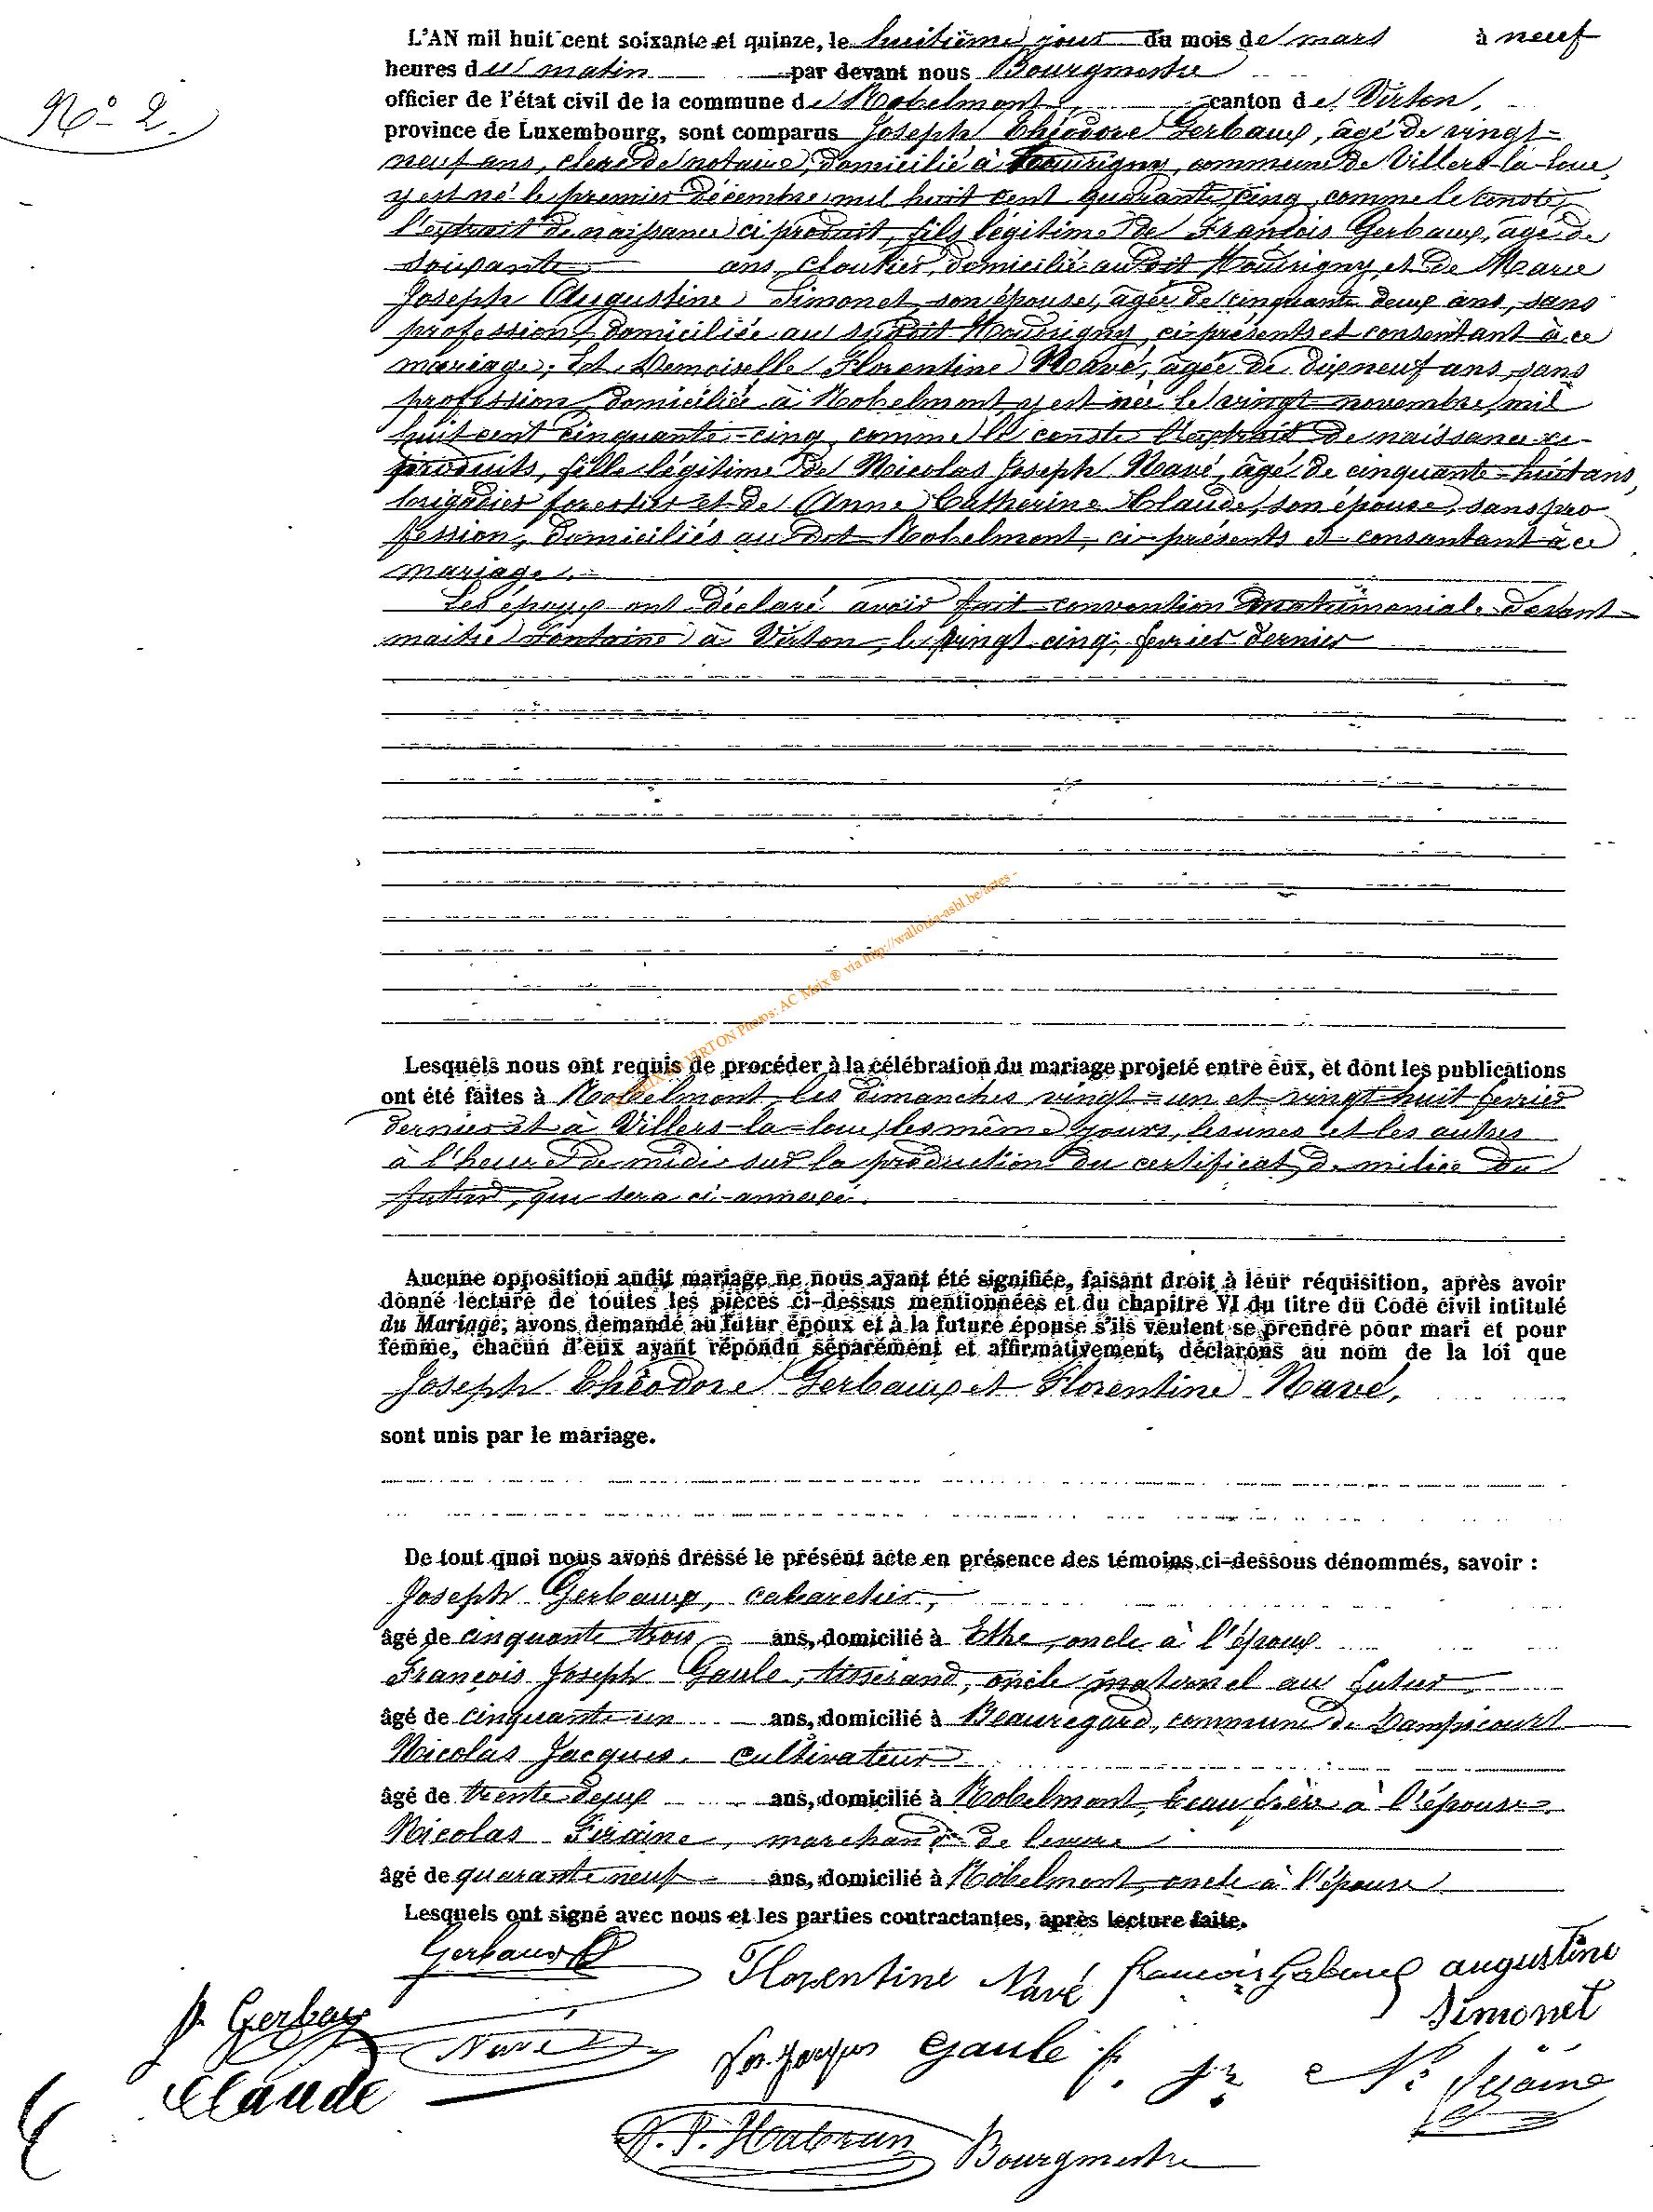 N° 2.
L'AN mil huit cent soixante et quinze, le huitième jour du mois de mars à neuf
heures du matin par devant nous Bourgmestre
officier de l'état civil de la commune de Robelmont, canton de Virton,
province de Luxembourg, sont comparus Joseph Théodore Gerbaux, âgé de vingt-
neuf ans, clerc de notaire, domicilié à Houdrigny, commune de Villers-la-loue,
y est né le premier décembre mil huit cent quarante cinq, comme le conste
l'extrait de naissance ci produit, fils légitime de François Gerbaux, âgé de
soixante ans, cloutier, domicilié au dit Houdrigny et de Marie
Joseph Augustine Simonet, son épouse, âgée de cinquante deux ans, sans
profession, domiciliée au sudit Houdrigny, ci-présents et consentant à ce
mariage; Et Demoiselle Florentine Navé, âgée de dix neuf ans, sans
profession, domiciliée à Robelmont, y est née le vingt novembre, mil
huit cent cinquante-cinq, comme le conste l'extrait de naissance ce-
produits, fille légitime de Nicolas Joseph Navé, âgé de cinquante-huit ans,
brigadier forestier et de Anne Catherine Claude, son épouse, sans pro
fession, domiciliés au dot Robelmont, ci-présents et consantant à ce
mariage.
Les époux ont déclaré avoir fait convention matrimoniale devant
maitre Fontaine à Virton, le vingt cinq fevrier dernier
AC MEIX dvt VIRTON Photos: AC Meix ® via http://wallonia-asbl.be/actes -
Lesquels nous ont requis de procéder à la célébration du mariage projeté entre eux, et dont les publications
ont été faites à Robelmont, les dimanches vingt-un et vingt huit fevrier
dernier et à Villers-la-loue, les même jours, les unes et les autres
à l'heure de midi sur la production du certificat de milice du
futur, qui sera ci-annexé.
Aucune opposition audit mariage ne nous ayant été signifiée, faisant droit à leur réquisition, après avoir
donné lecture de toutes les pièces ci-dessus mentionnées et du chapitre VI du titre du Code civil intitulé
du Mariage; avons demandé au futur époux et à la future épouse s'ils veulent se prendre pour mari et pour
femme, chacun d'eux ayant répondu séparément et affirmativement, déclarons au nom de la loi que
Joseph Théodore Gerbaux et Florentine Navé,
sont unis par le mariage.
De tout quoi nous avons dressé le présent acte en présence des témoins ci-dessous dénommés, savoir :
Joseph Gerbaux, cabaretier,
âgé de cinquante trois ans, domicilié à Ethe, oncle à l'époux
François Joseph Gaule, tisserand, oncle maternel au futur,
âgé de cinquante un ans, domicilié à Beauregard, commune de Dampicourt
Nicolas Jacques, cultivateur
âgé de trente deux ans, domicilié à Robelmont, beau frère à l'épouse
Nicolas Siraine, marchand de levure
âgé de quarante neuf ans, domicilié à Robelmont, oncle à l'épouse
Lesquels ont signé avec nous et les parties contractantes, après lecture faite.
Gerbaux Florentine Navé françois Gerbaux augustine
Simonet
Gerbaux Navé Jacques Gaule f. j.
Claude
Bourgmestre